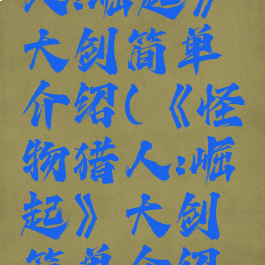 人:崛起》
大剑简单
介绍(《怪
物猎人:崛
起》大剑
简单介绍